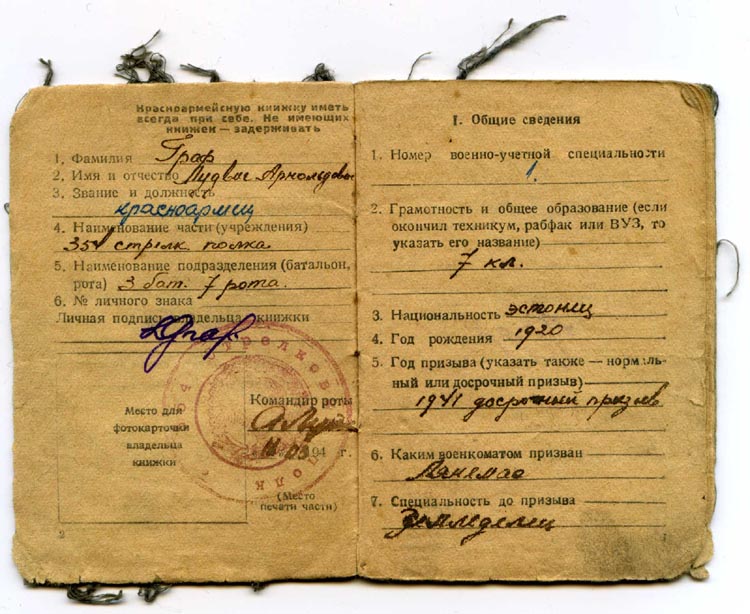 Красноармейскую книжку иметь
всегда при себе. Не имеющих
книжек — задерживать
1. Фамилия Граф
2. Имя и отчество Арнольдович
3. Звание и должность
красноармеец
4. Наименование части (учреждения)
354 стрелк полка
5. Наименование подразделения (батальон,
рота) 3 бат. 7 рота.
6. № личного знака
Личная подпись владельца книжки
Место для
фотокарточки
владельца
книжки
Командир роты
194 г.
(Место
печати части)
2
I. Общие сведения
1. Номер военно-учетной специальности
1.
2. Грамотность и общее образование (если
окончил техникум, рабфак или ВУЗ, то
указать его название)
7 кл.
3. Национальность эстонец
4. Год рождения 1920
5. Год призыва (указать также — нормаль-
ный или досрочный призыв)
1941 досрочный призыв
6. Каким военкоматом призван
Лянемаа
7. Специальность до призыва
Земледелец